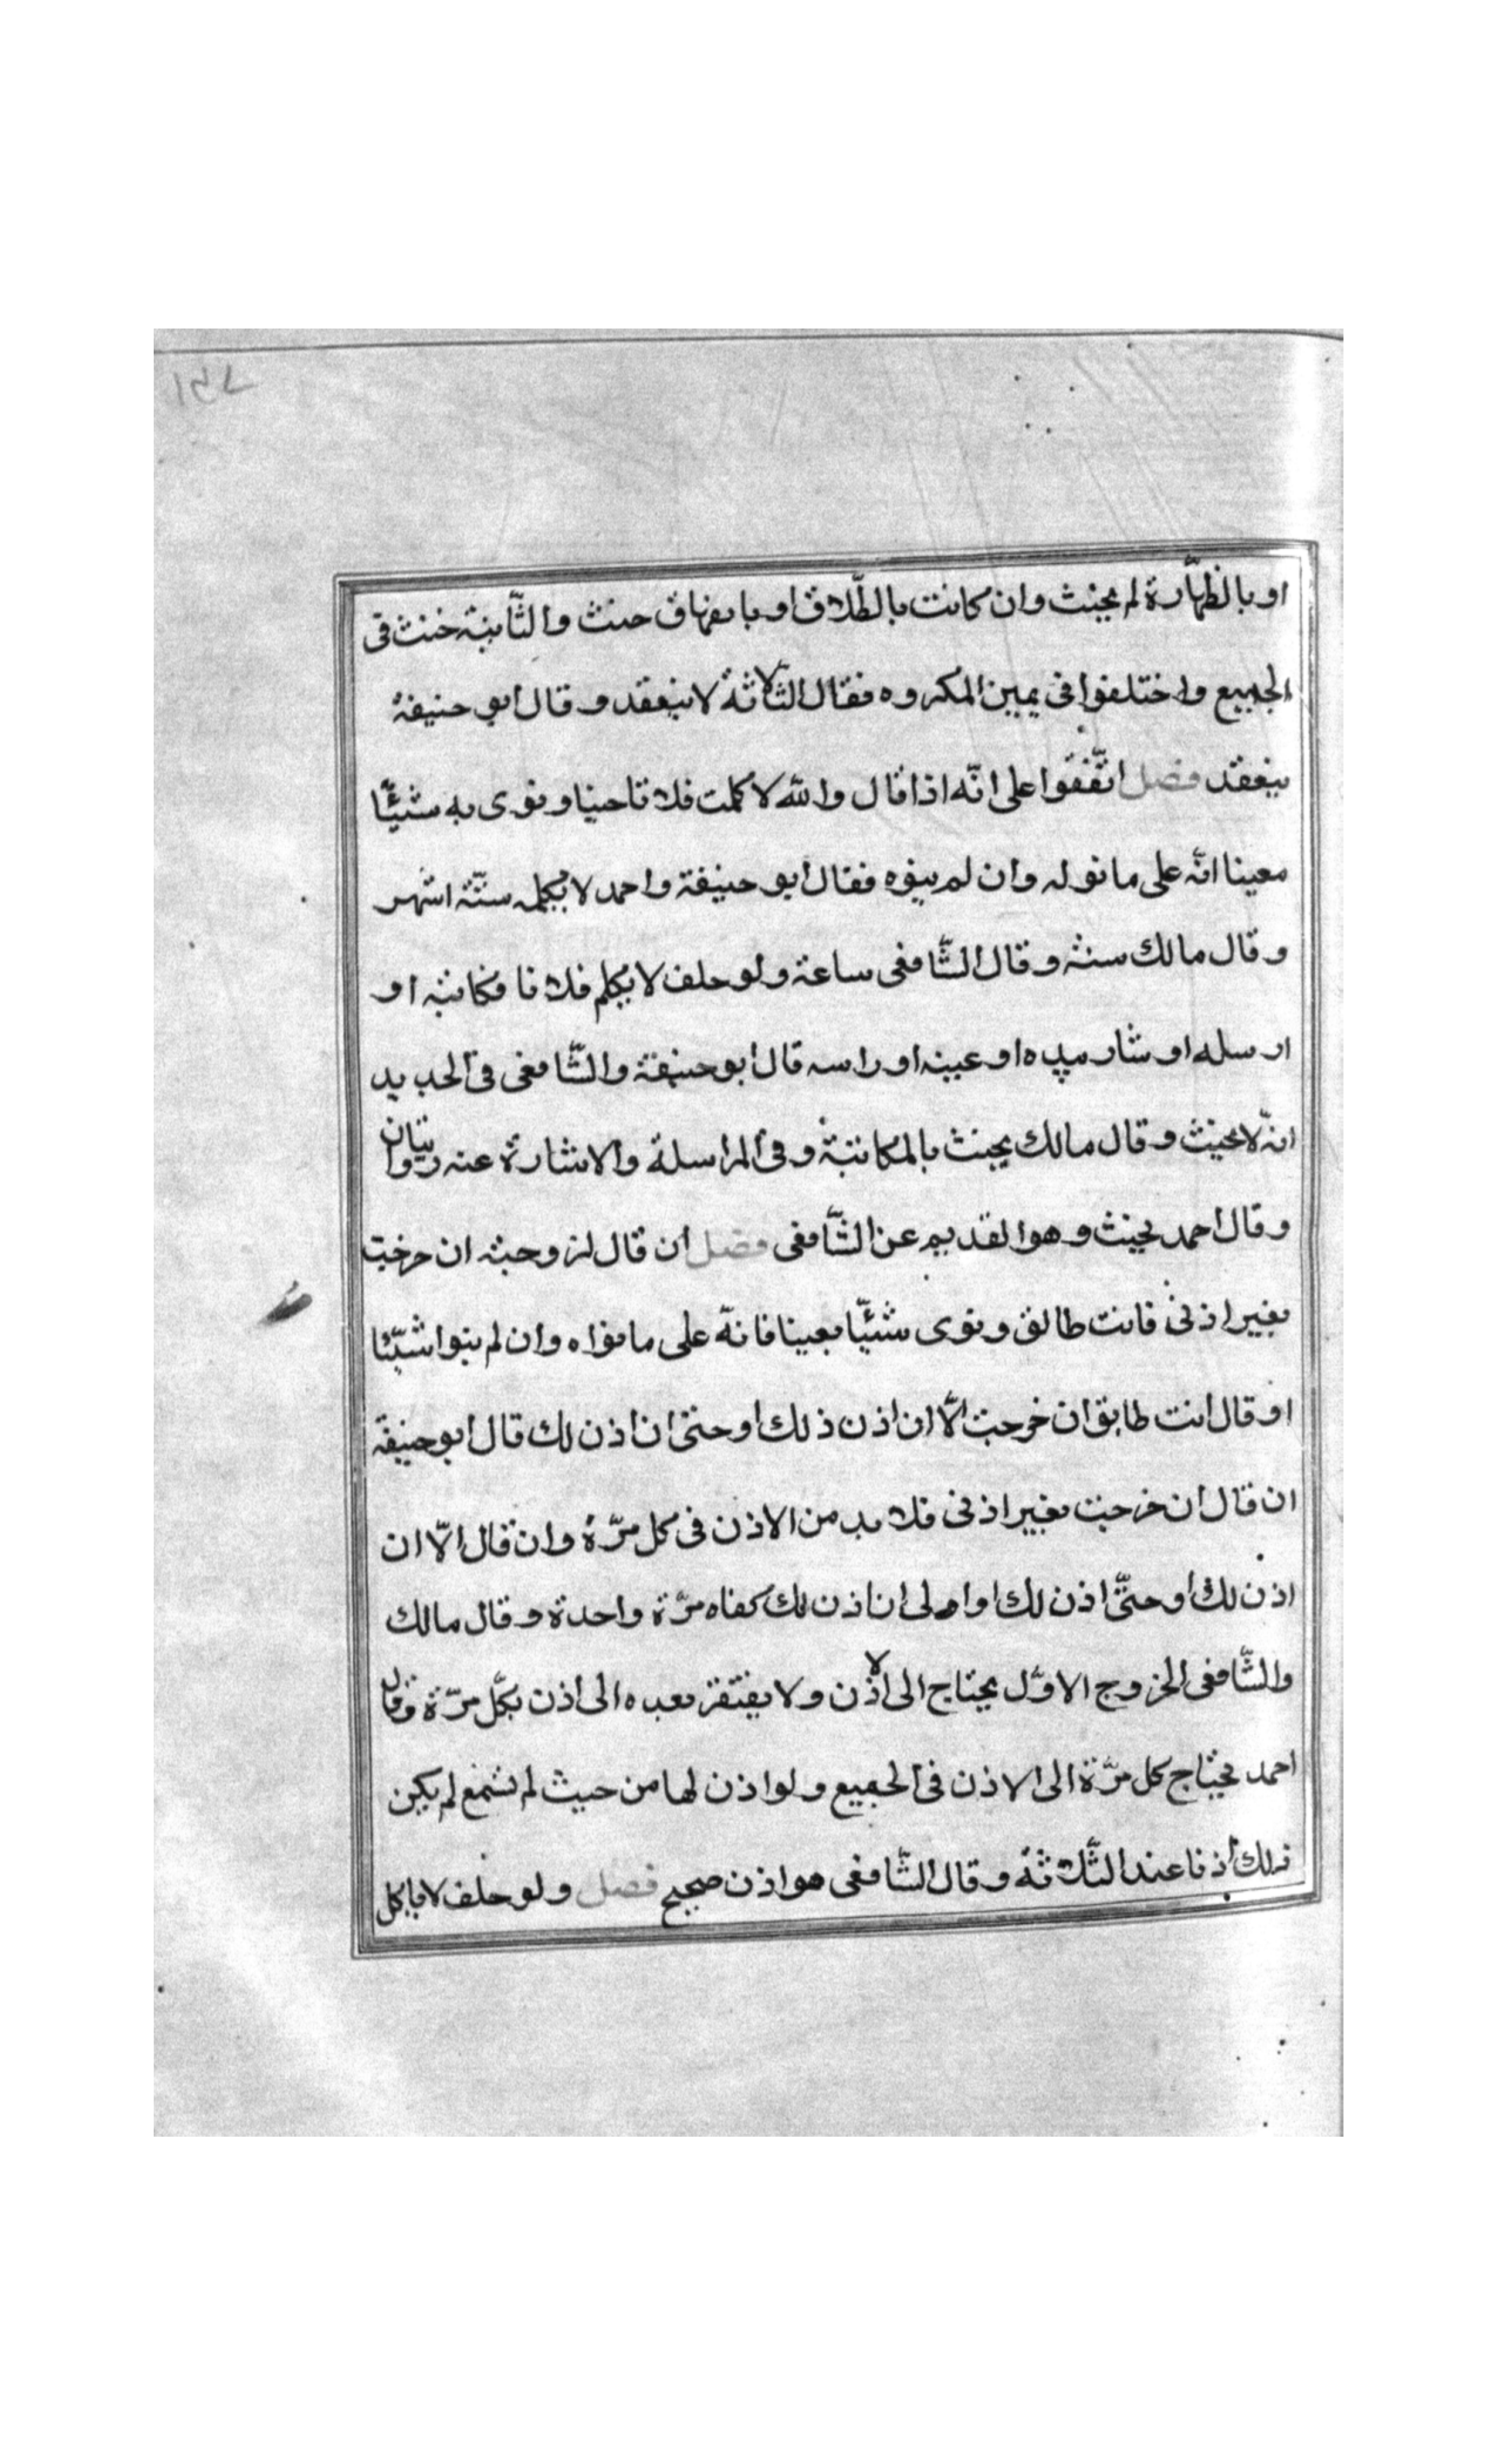 ١٤٧
او بالظهارة لم يحنث وان كانت بالطلاق او بالعتاق حنث والثانية حنث فى
الجميع واختلفوا فى يمين المكروه فقال الثلاثة لا ينعقد وقال ابو حنيفة
ينعقد فصل اتّفقوا على انّه اذا قال والله لا كلمت فلانا حينا ونوى به شيئًا
معينا انّه على ما نوله وان لم ينوه فقال ابو حنيفة واحمد لا يكلمه ستّة اشهر
وقال مالك سنة وقال الشّافعى ساعة ولو حلف لا يكلم فلانا فكاتبه او
ارسله او شار بيده او عينه او راسه قال ابو حنيفة والشّافعى فى الجديد
انّه لا يحنث وقال مالك يحنث بالمكاتبة وفى المراسلة والاشارة عنه روايتان
وقال احمد يحنث وهو القديم عن الشّافعى فصل ان قال لزوجته ان خرجت
بغير اذنى فانت طالق ونوى شيئًا معينا فانّه على ما نواه وان لم ينوا شيئًا
او قال انت طالق ان خرجت الّا ان اذن ذلك او حتى ان اذن لك قال ابو حنيفة
ان قال ان خرجت بغير اذنى فلا بد من الاذن فى كل مرّة وان قال الّا ان
اذن لك او حتّى اذن لك او الى ان اذن لك كفاه مرّة واحدة وقال مالك
والشّافعى الخروج الاوّل يحتاج الى الاذن ولا يفتقر بعده الى اذن بكلّ مرّة وقال
احمد يحتاج كل مرّة الى الاذن فى الجميع ولو اذن لها من حيث لم تسمع لم يكن
ذلك اذنا عند الثّلاثة وقال الشّافعى هو اذن صحيح فصل ولو حلف لا ياكل